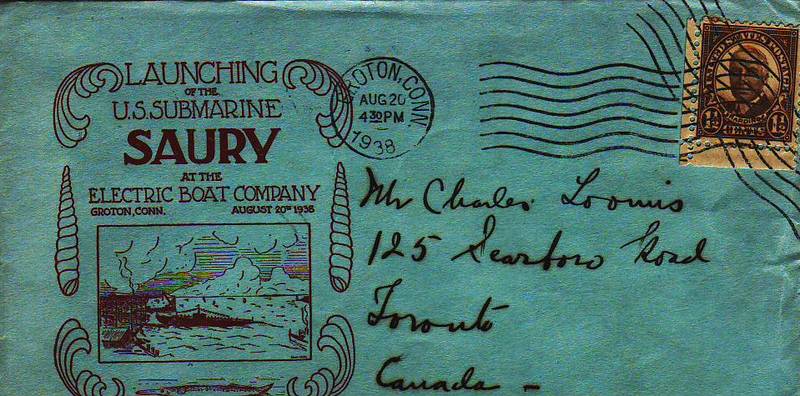 LAUNCHING
OF THE
U.S. SUBMARINE
SAURY
AT THE
ELECTRIC BOAT COMPANY
GROTON, CONN. AUGUST 20TH 1938
GROTON, CONN.
AUG 20
4 30 PM
1938
UNITED STATES POSTAGE
HARDING
1½ CENTS 1½
Mr Charles Loomis
125 Scarboro Road
Toronto
Canada -